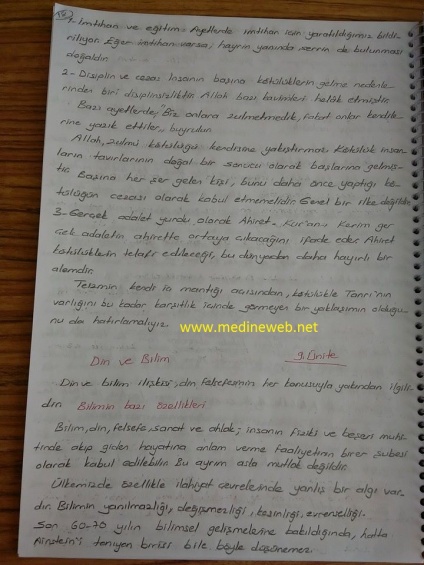 1- İmtihan ve eğitim: Ayetlerde imtihan için yaratıldığımız bildi-
riliyor. Eğer imtihan varsa, hayrın yanında şerrin de bulunması
doğaldır.
2- Disiplin ve ceza: İnsanın başına kötülüklerin gelme nedenle-
rinden biri disiplinsizliktir. Allah bazı kavimleri helak etmiştir.
Bazı ayetlerde, "Biz onlara zulmetmedik, fakat onlar kendile-
rine yazık ettiler", buyrulur.
Allah, zulmü kötülüğü kendisine yakıştırmaz. Kötülük insan-
ların tavırlarının doğal bir sonucu olarak başlarına gelmiş-
tir. Başına her şer gelen kişi, bunu daha önce yaptığı kö-
tülüğün cezası olarak kabul etmemelidir. Genel bir ilke değildir.
3- Gerçek adalet yurdu olarak Ahiret- Kur'anı Kerim ger
çek adaletin ahirette ortaya çıkacağını ifade eder. Ahiret
kötülüklerin telafi edileceği, bu dünyadan daha hayırlı bir
alemdir.
Teizmin kendi iç mantığı açısından, kötülükle Tanrı'nın
varlığını bu kadar karşıtlık içinde görmeyen bir yaklaşımın olduğu-
nu da hatırlamalıyız.
www.medineweb.net
Din ve Bilim 9. Ünite
Din ve bilim ilişkisi, din felsefesinin her konusuyla yakından ilgili-
dir. Bilimin bazı özellikleri
Bilim, din, felsefe, sanat ve ahlak; insanın fiziki ve beşeri muhi-
tinde akıp giden hayatına anlam verme faaliyetinin birer şubesi
olarak kabul edilebilir. Bu ayrım asla mutlak değildir.
Ülkemizde özellikle ilahiyat çevrelerinde yanlış bir algı var-
dır. Bilimin yanılmazlığı, değişmezliği, kesinliği, evrenselliği.
Son 60-70 yılın bilimsel gelişmelerine bakıldığında, hatta
Einstein'ı tanıyan birisi bile böyle düşünemez.